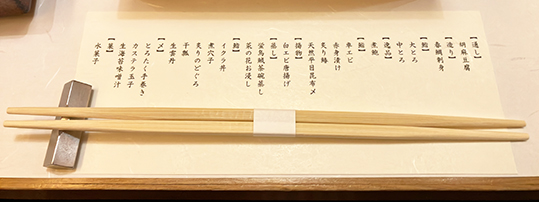 【通し】
胡麻豆腐
【造り】
春鯛刺身
【鮨】
大とろ
中とろ
【逸品】
煮鮑
【鮨】
車エビ
赤身漬け
炙り鰆
天然平目昆布〆
【揚物】
白エビ唐揚げ
【蒸し】
蛍烏賊茶碗蒸し
菜の花お浸し
【鮨】
イクラ丼
煮穴子
炙りのどぐろ
生雲丹
干瓢
【〆】
とろたく手巻き
カステラ玉子
生海苔味噌汁
【菓】
水菓子